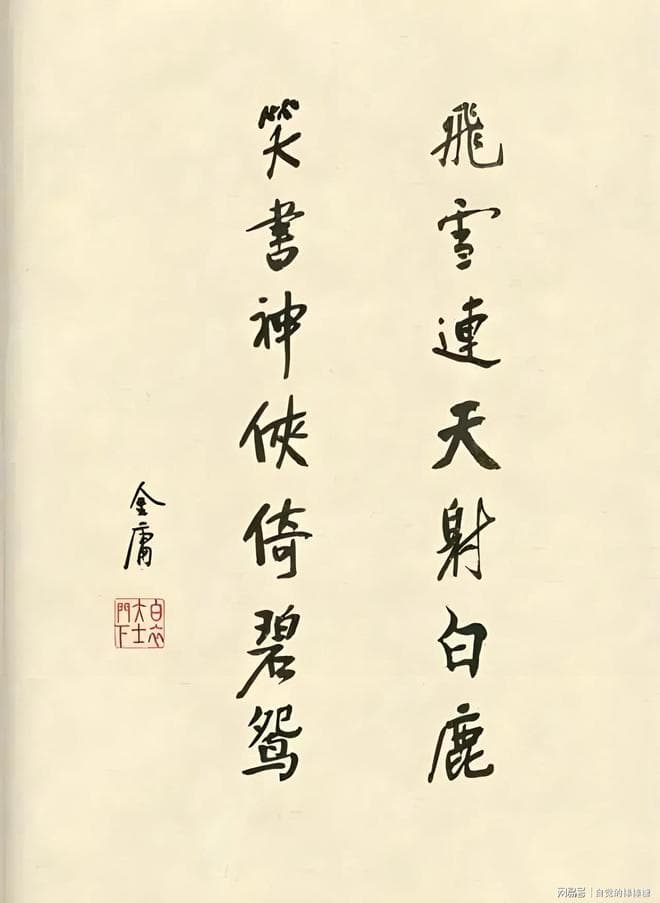 飛雪連天射白鹿
笑書神俠倚碧鴛
金庸
白衣大士門下
网易号 | 自觉的棒棒糖